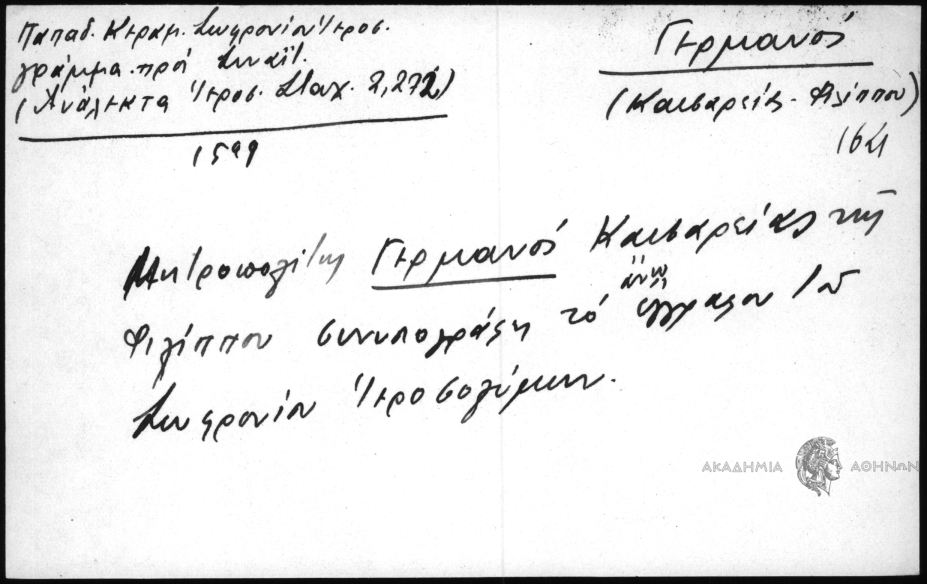 Παπαδ. Κεραμ. Σωφρονίου Ιεροσ.
γράμμα πρός Σιναΐτ.
(Ανάλεκτα Ιεροσ. Σταχ. 2,272)
1599
Γερμανός
(Καισαρείας - Φιλίππου)
Μητροπολίτης Γερμανός Καισαρείας τής
Φιλίππου συνυπογράφει τό άνω έγγραφον τού
Σωφρονίου Ιεροσολύμων.
ΑΚΑΔΗΜΙΑ ΑΘΗΝΩΝ